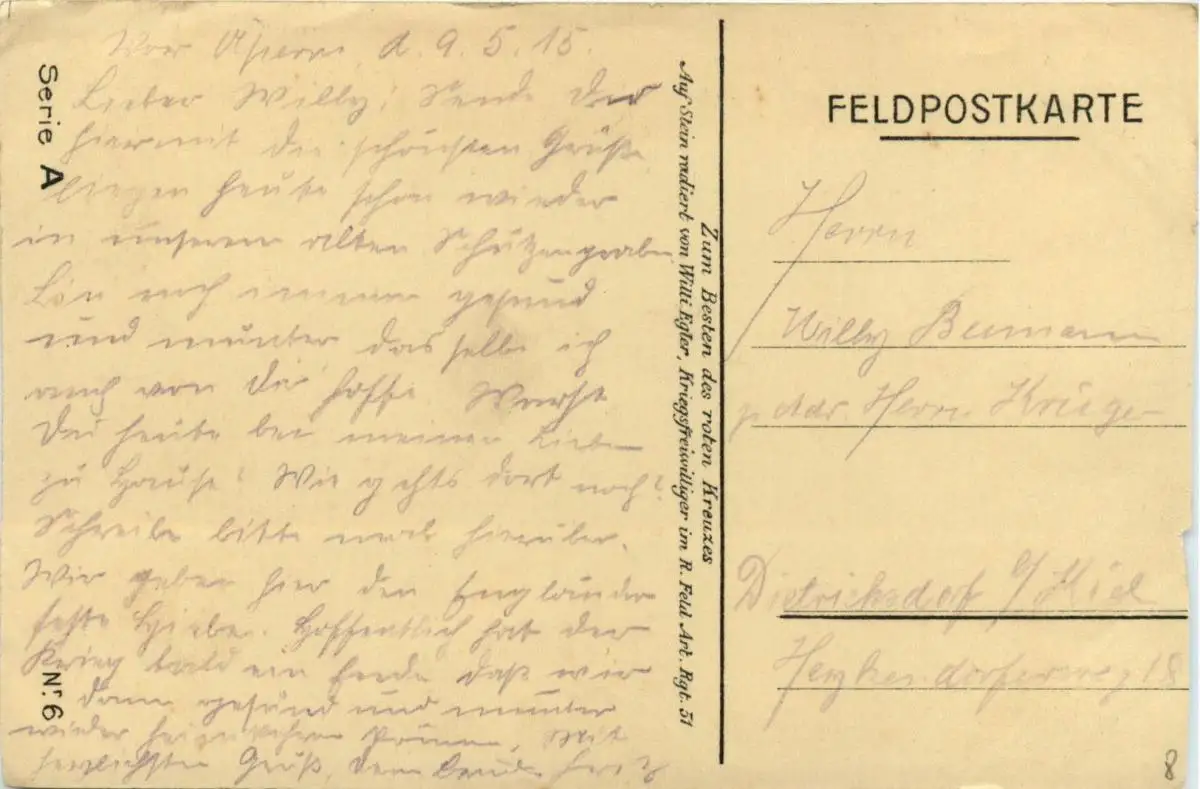 Vor Ypern, d. 9. 5. 15.
Lieber Willy! Sende Dir
hiermit die schönsten Grüße
liegen heute schon wieder
in unseren alten Schützengraben
Bin noch immer gesund
und munter dasselbe ich
auch von Dir hoffe. Warst
Du heute bei meinen Lieben
zu Hause? Wie gehts dort noch?
Schreibe bitte mal hierüber.
Wir geben hier den Engländer
feste Hiebe. Hoffentlich hat der
Krieg bald ein Ende daß wir
dann gesund und munter
wieder können. Mit
herzlichsten Gruß Dein Bruder Fritz
Serie A
Nr. 6
Zum Besten des roten Kreuzes
Auf Stein radiert von Willi Egler, Kriegsfreiwilliger im R. Feld Art. Rgt. 51
FELDPOSTKARTE
Herrn
Willy
Herrn Krüger
Dietrichsdorf b/ Kiel
18
8